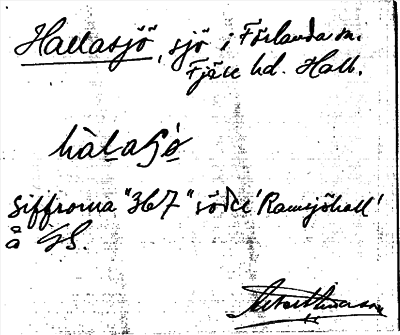 Hallasjö, sjö i Förlanda sn.
Fjäre hd. Hall.
hàlasjö
Siffrorna "367" söder 'Ramsjöhall'
å GS.